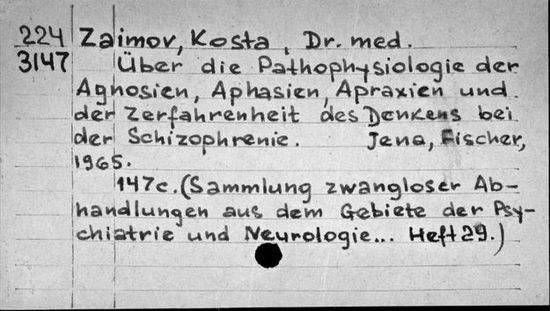 224 Zaimov, Kosta, Dr. med.
3147 Über die Pathophysiologie der
Agnosien, Aphasien, Apraxien und
der Zerfahrenheit des Denkens bei
der Schizophrenie. Jena, Fischer,
1965.
147c. (Sammlung zwangloser Ab-
handlungen aus dem Gebiete der Psy-
chiatrie und Neurologie... Heft 29.)